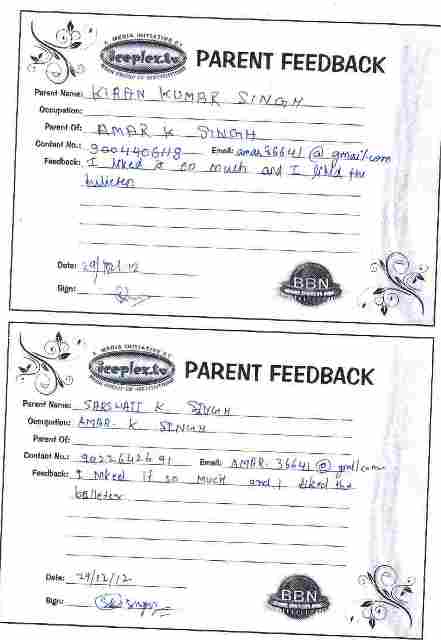 A MEDIA INITIATIVE BY
iceplex.tv
PARENT FEEDBACK
Parent Name: KIRAN KUMAR SINGH
Occupation:
Parent Of: AMAR K SINGH
Contact No.: 900440648 Email: amar36641@gmail.com
Feedback: I liked it so much and I liked the
Date: 29/12/12
Sign:
BBN
A MEDIA INITIATIVE BY
iceplex.tv
PARENT FEEDBACK
Parent Name: SARSWATI K SINGH
Occupation: AMAR K SINGH
Parent Of:
Contact No.: 9022642691 Email: AMAR.36641@
Feedback: I liked it so much and I liked the
Date: 29/12/12
Sign: Singh
BBN